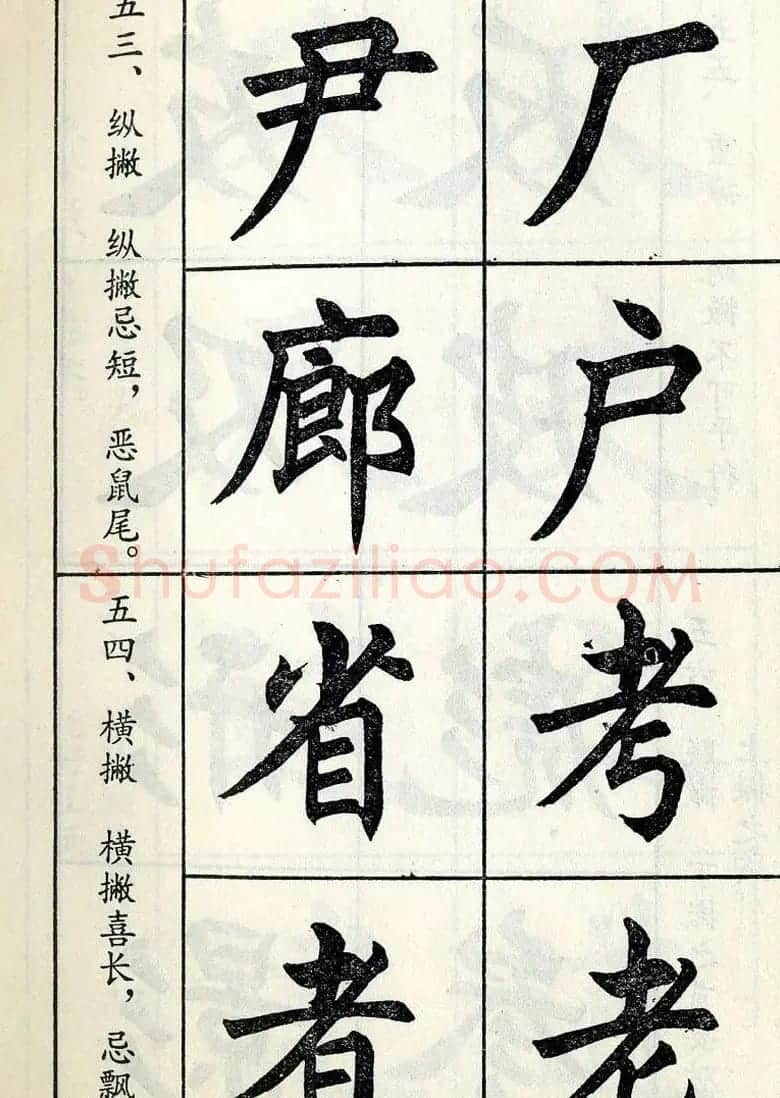 厂户考老
尹廊省者
五三、纵撇 纵撇忌短，恶鼠尾。
五四、横撇 横撇喜长，忌飘
Shufaziliao.COM